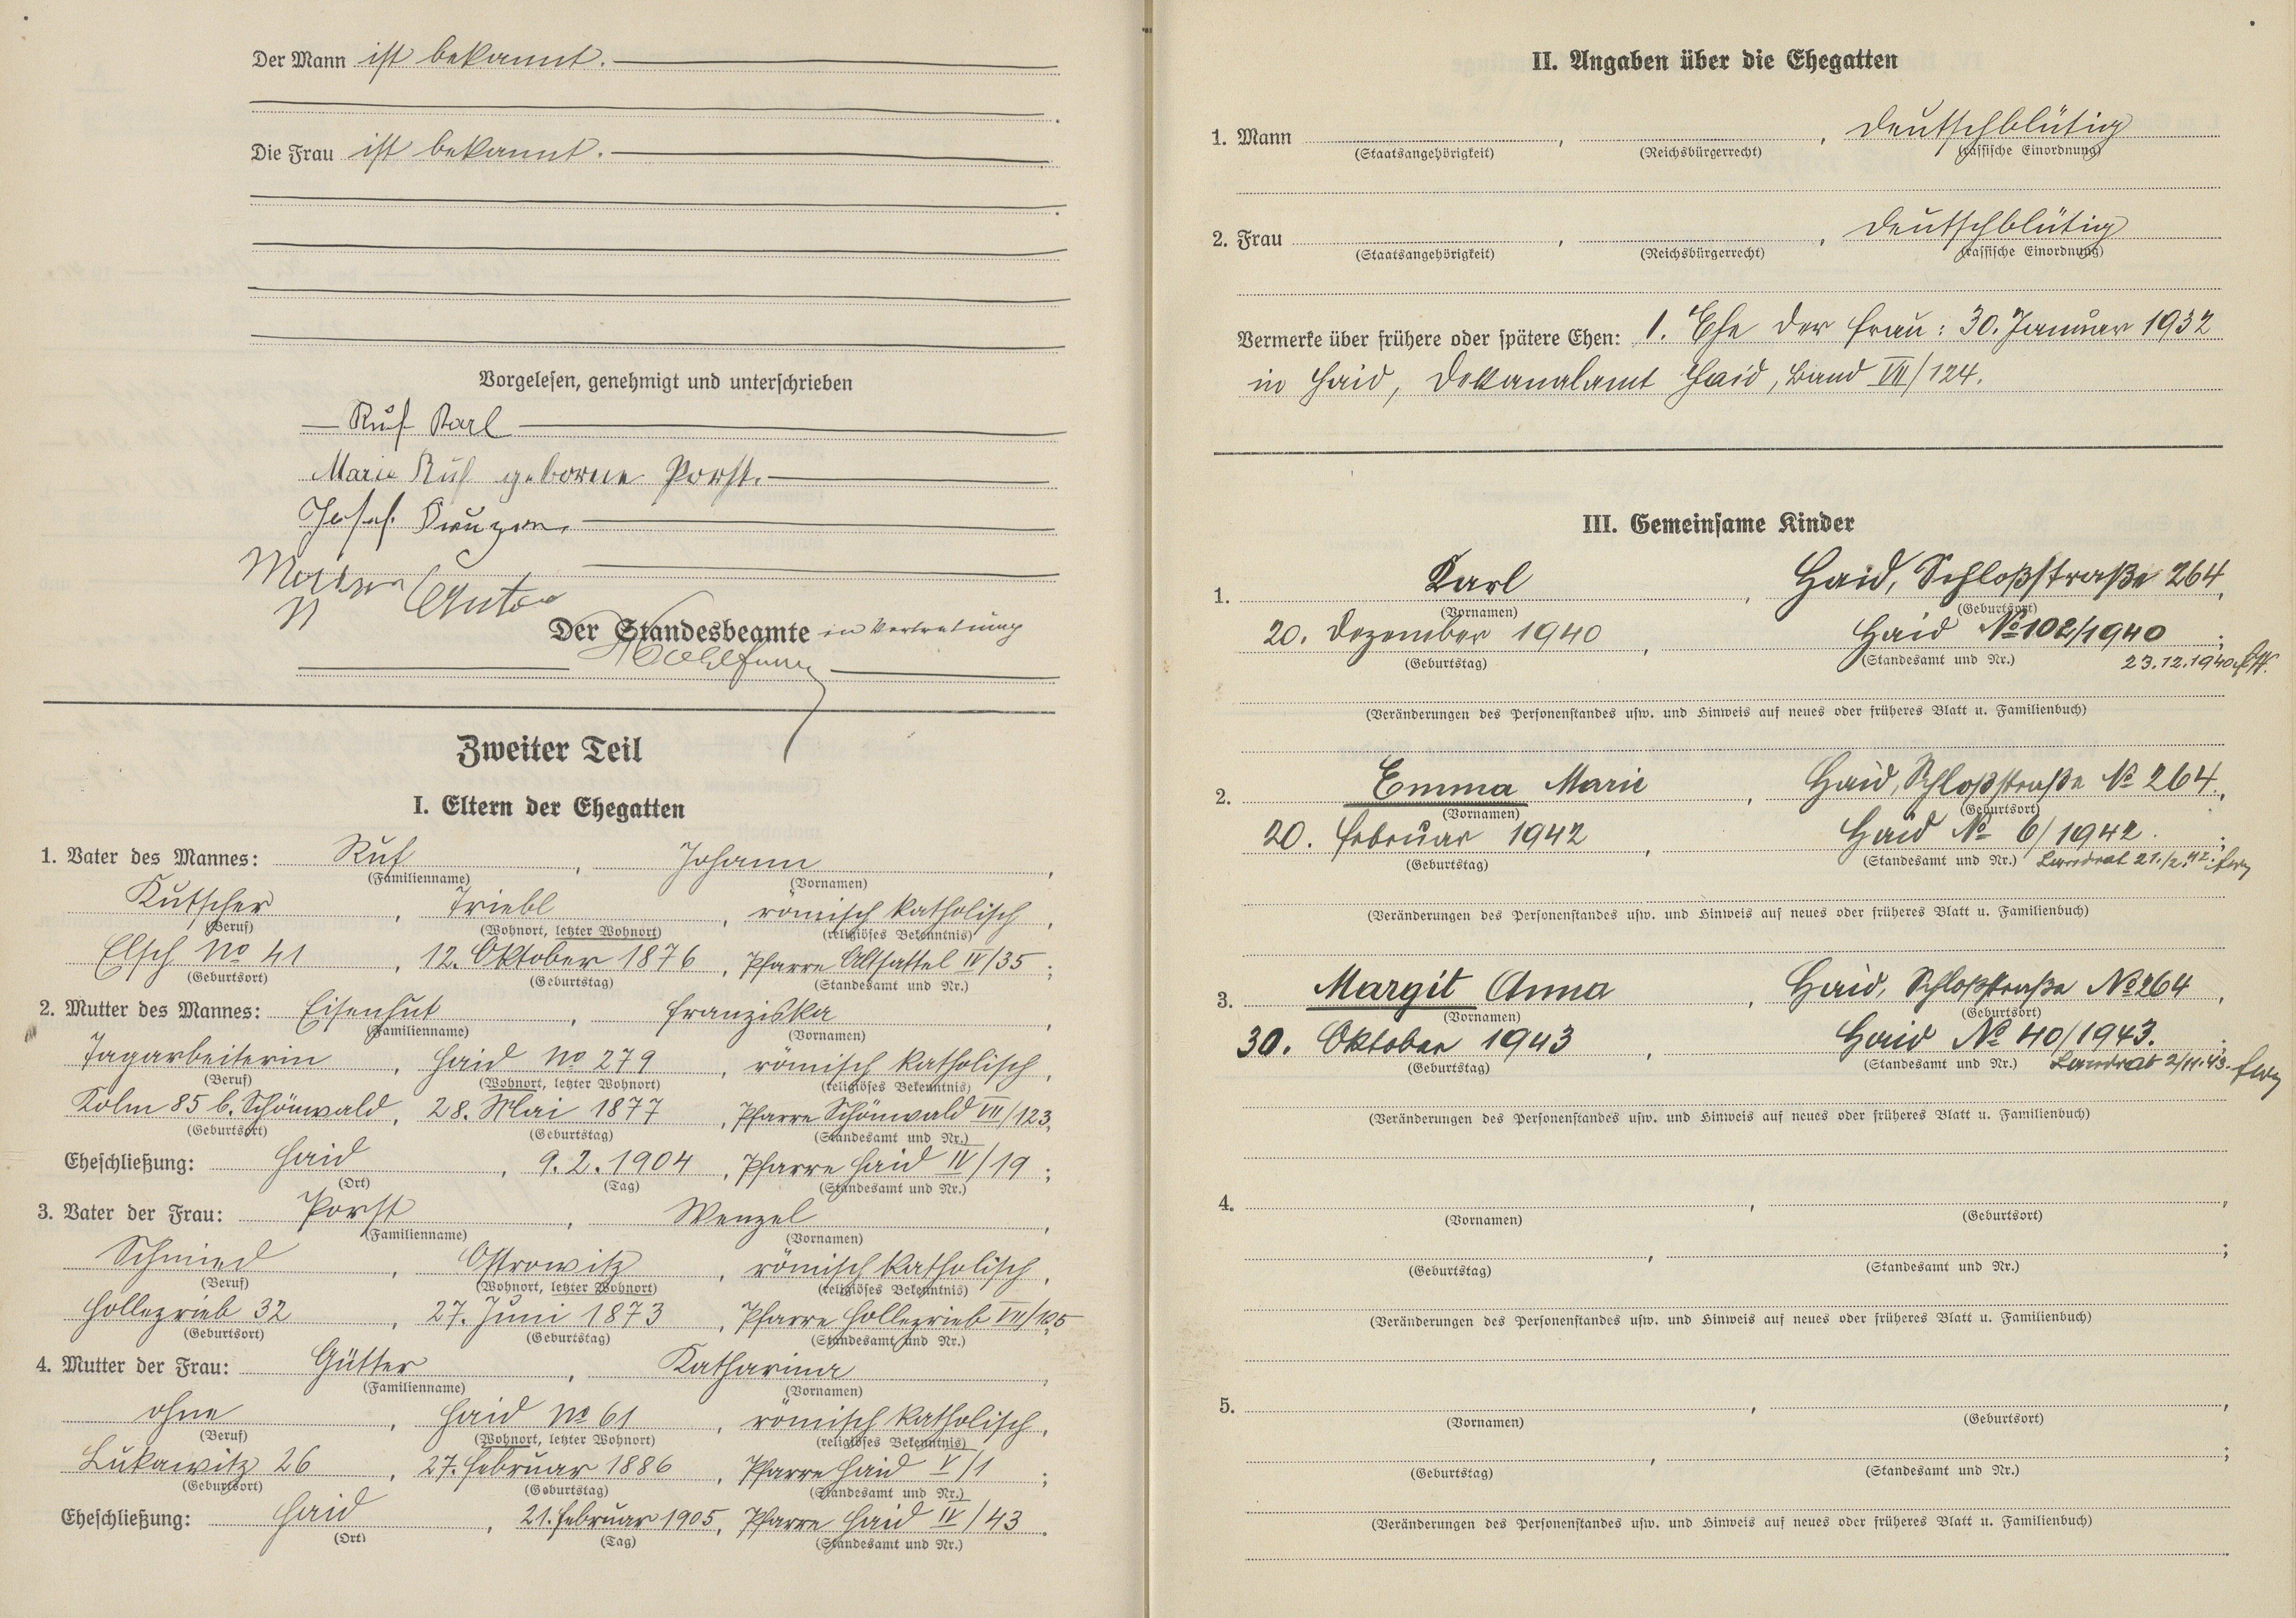 Der Mann ist bekannt.
Die Frau ist bekannt.
Vorgelesen, genehmigt und unterschrieben
Ruf Karl
Marie Ruf geborene Porst.
Josef
Anton
Der Standesbeamte in Vertretung
Zweiter Teil
I. Eltern der Ehegatten
1. Vater des Mannes: Ruf, Johann,
(Familienname) (Vornamen)
Kutscher, Triebl, römisch katholisch,
(Beruf) (Wohnort, letzter Wohnort) (religiöses Bekenntnis)
Elsch No 41, 12. Oktober 1876, Pfarre Altsattel IV/35;
(Geburtsort) (Geburtstag) (Standesamt und Nr.)
2. Mutter des Mannes: Eisenhut, Franziska,
(Familienname) (Vornamen)
Tagarbeiterin, Haid No 279, römisch katholisch,
(Beruf) (Wohnort, letzter Wohnort) (religiöses Bekenntnis)
Kolm 85 b. Schönwald, 28. Mai 1877, Pfarre Schönwald VIII/123,
(Geburtsort) (Geburtstag) (Standesamt und Nr.)
Eheschließung: Haid, 9.2.1904, Pfarre Haid IV/19;
(Ort) (Tag) (Standesamt und Nr.)
3. Vater der Frau: Porst, Wenzel,
(Familienname) (Vornamen)
Schmied, Ostrowitz, römisch katholisch,
(Beruf) (Wohnort, letzter Wohnort) (religiöses Bekenntnis)
Hollezrieb 32, 27. Juni 1873, Pfarre Hollezrieb
(Geburtsort) (Geburtstag) (Standesamt und Nr.)
4. Mutter der Frau: Gütter, Katharina,
(Familienname) (Vornamen)
ohne, Haid No 61, römisch katholisch,
(Beruf) (Wohnort, letzter Wohnort) (religiöses Bekenntnis)
Lukawitz 26, 27. Februar 1886, Pfarre Haid V/1;
(Geburtsort) (Geburtstag) (Standesamt und Nr.)
Eheschließung: Haid, 21. Februar 1905, Pfarre Haid IV/43.
(Ort) (Tag) (Standesamt und Nr.)
II. Angaben über die Ehegatten
1. Mann , , deutschblütig
(Staatsangehörigkeit) (Reichsbürgerrecht) (rassische Einordnung)
2. Frau , , deutschblütig
(Staatsangehörigkeit) (Reichsbürgerrecht) (rassische Einordnung)
Vermerke über frühere oder spätere Ehen: 1. Ehe der Frau: 30. Januar 1932
in Haid, Dekanalamt Haid, Band VII/124.
III. Gemeinsame Kinder
1. Karl, Haid, Schloßstraße 264,
(Vornamen) (Geburtsort)
20. Dezember 1940, Haid No 102/1940;
(Geburtstag) (Standesamt und Nr.) 23.12.1940
(Veränderungen des Personenstandes usw. und Hinweis auf neues oder früheres Blatt u. Familienbuch)
2. Emma Marie, Haid, Schloßstraße No 264.,
(Vornamen) (Geburtsort)
20. Februar 1942, Haid No 6/1942.;
(Geburtstag) (Standesamt und Nr.) Landrat 21./2.42.
(Veränderungen des Personenstandes usw. und Hinweis auf neues oder früheres Blatt u. Familienbuch)
3. Margit Anna, Haid, Schloßstraße No 264,
(Vornamen) (Geburtsort)
30. Oktober 1943, Haid No 40/1943.;
(Geburtstag) (Standesamt und Nr.) Landrat 2/11.43.
(Veränderungen des Personenstandes usw. und Hinweis auf neues oder früheres Blatt u. Familienbuch)
4. , ,
(Vornamen) (Geburtsort)
, ;
(Geburtstag) (Standesamt und Nr.)
(Veränderungen des Personenstandes usw. und Hinweis auf neues oder früheres Blatt u. Familienbuch)
5. , ,
(Vornamen) (Geburtsort)
, ;
(Geburtstag) (Standesamt und Nr.)
(Veränderungen des Personenstandes usw. und Hinweis auf neues oder früheres Blatt u. Familienbuch)